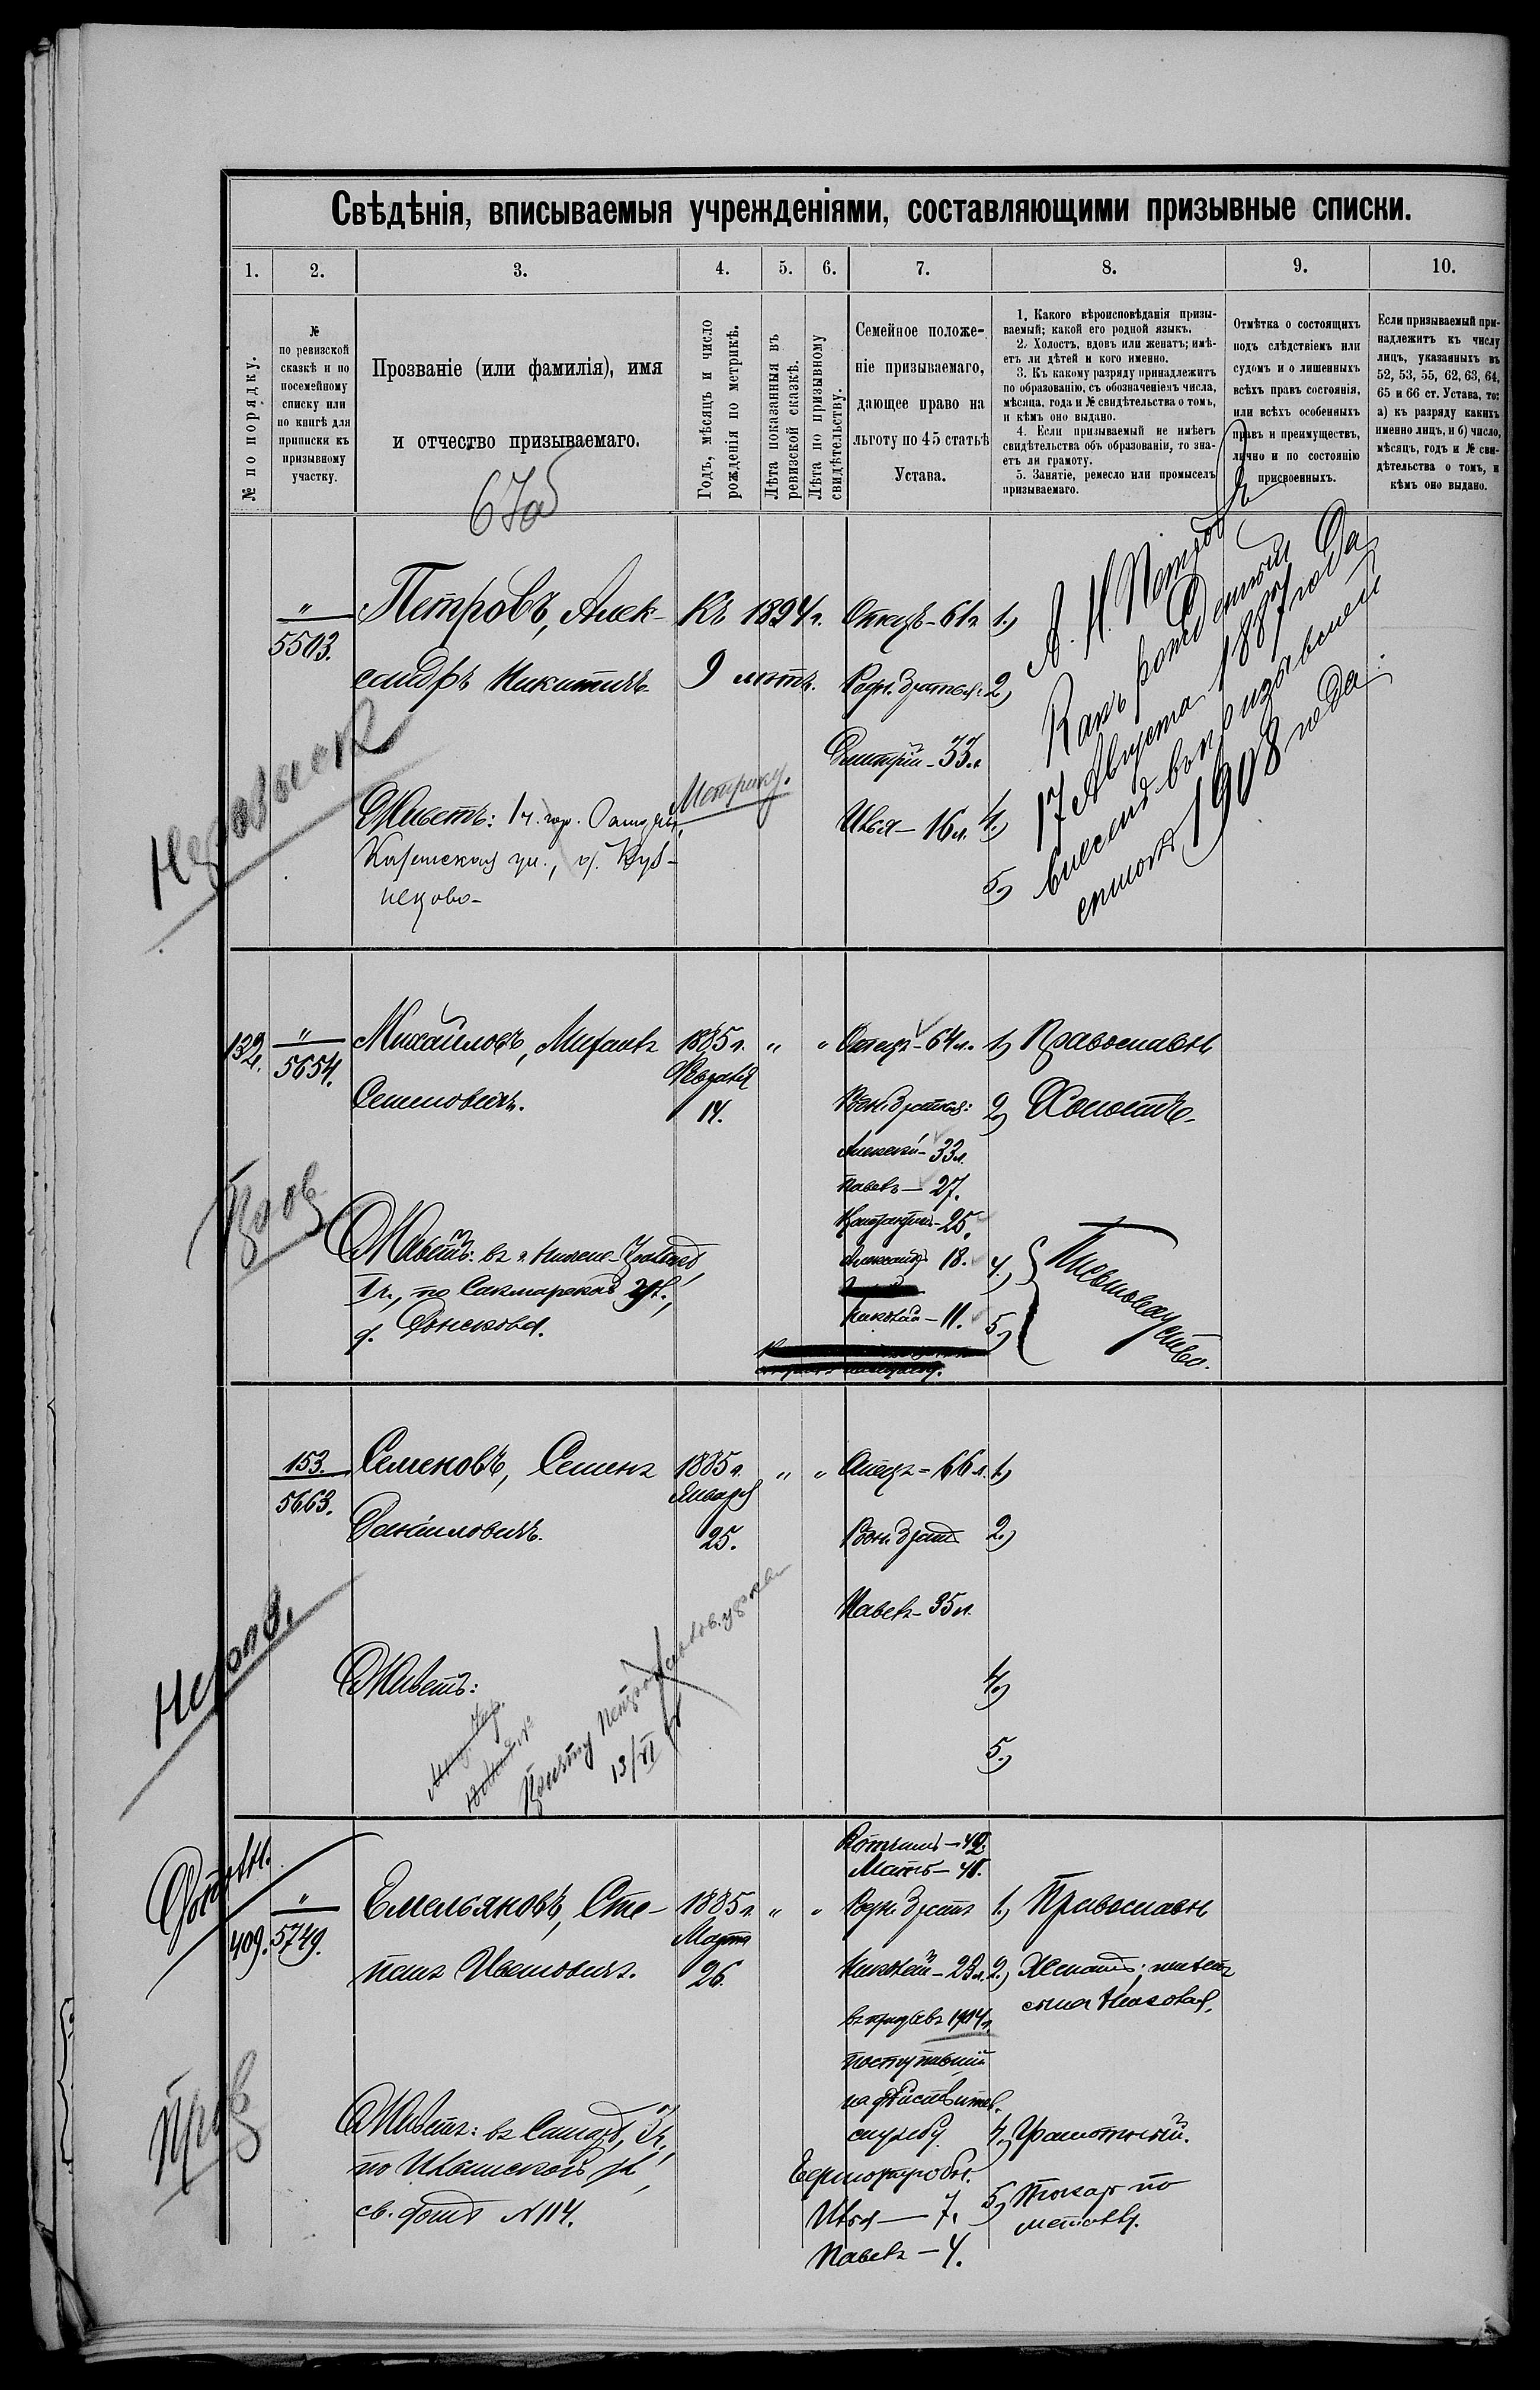 Свѣдѣнія, вписываемыя учрежденіями, составляющими призывные списки.
1. 2. 3. 4. 5. 6. 7. 8. 9. 10.
№ по порядку.
№
по ревизской
сказкѣ и по
посемейному
списку или
по книгѣ для
приписки къ
призывному
участку.
Прозваніе (или фамилія), имя
и отчество призываемаго.
Годъ, мѣсяцъ и число
рожденія по метрикѣ.
Лѣта показанныя въ
ревизской сказкѣ.
Лѣта по призывному
свидѣтельству.
Семейное положе-
ніе призываемаго,
дающее право на
льготу по 45 статьѣ
Устава.
1. Какого вѣроисповѣданія призы-
ваемый; какой его родной языкъ.
2. Холостъ, вдовъ или женатъ; имѣ-
етъ ли дѣтей и кого именно.
3. Къ какому разряду принадлежитъ
по образованію, съ обозначеніемъ числа,
мѣсяца, года и № свидѣтельства о томъ,
и кѣмъ оно выдано.
4. Если призываемый не имѣетъ
свидѣтельства объ образованіи, то зна-
етъ ли грамоту.
5. Занятіе, ремесло или промыселъ
призываемаго.
Отмѣтка о состоящихъ
подъ слѣдствіемъ или
судомъ и о лишенныхъ
всѣхъ правъ состоянія,
или всѣхъ особенныхъ
правъ и преимуществъ,
лично и по состоянію
присвоенныхъ.
Если призываемый при-
надлежитъ къ числу
лицъ, указанныхъ въ
52, 53, 55, 62, 63, 64,
65 и 66 ст. Устава, то:
а) къ разряду какихъ
именно лицъ, и б) число,
мѣсяцъ, годъ и № сви-
дѣтельства о томъ, и
кѣмъ оно выдано.
"
5503.
Петровъ, Алек-
сандръ Никитичъ.
Къ 1894 г.
9 лѣтъ.
Метрику.
Живетъ: 1 ч. гор. Самары,
Отецъ - 61 г.
Родн. братья:
Дмитрій - 33 л.
Илья - 16 л.
1.)
2.)
4.)
5.)
А. Н. Петровъ
Какъ рожденный
17 Августа 1887 года
внесенъ въ призывной
списокъ 1908 года.
132.
"
5654.
Михайловъ, Михаилъ
Семеновичъ.
1885 г.
Февраля
14.
" "
Отецъ - 64 л.
Родн. братья:
Алексѣй - 33 л.
Павелъ - 27.
25.
Александръ 18.
Николай - 11.
1.) Православн.
2.) Холостъ.
4.)
5.)
Донскова.
153.
5663.
Семеновъ, Семенъ
Даниловичъ.
1885 г.
Января
25.
" "
Отецъ - 66 л.
Родн. братъ
Павелъ - 35 л.
1.)
2.)
4.)
5.)
Живетъ:
13/VI
409.
"
5749.
Емельяновъ, Сте-
панъ Ивановичъ.
1885 г.
Марта
26.
" "
Вотчимъ - 49.
Мать - 48.
Родн. братъ
Николай - 23 л.
въ призывъ 1904 г.
поступившій
на дѣйствител.
службу.
Илья - 7.
Павелъ - 4.
1.) Православн.
2.) Женатъ; имѣетъ
сына Николая.
4.) Грамотный.
5.) Токарь по
металлу.
Живетъ: въ Самарѣ, 3 ч.,
по Ильинской ул.,
св. домъ N 114.
Пров